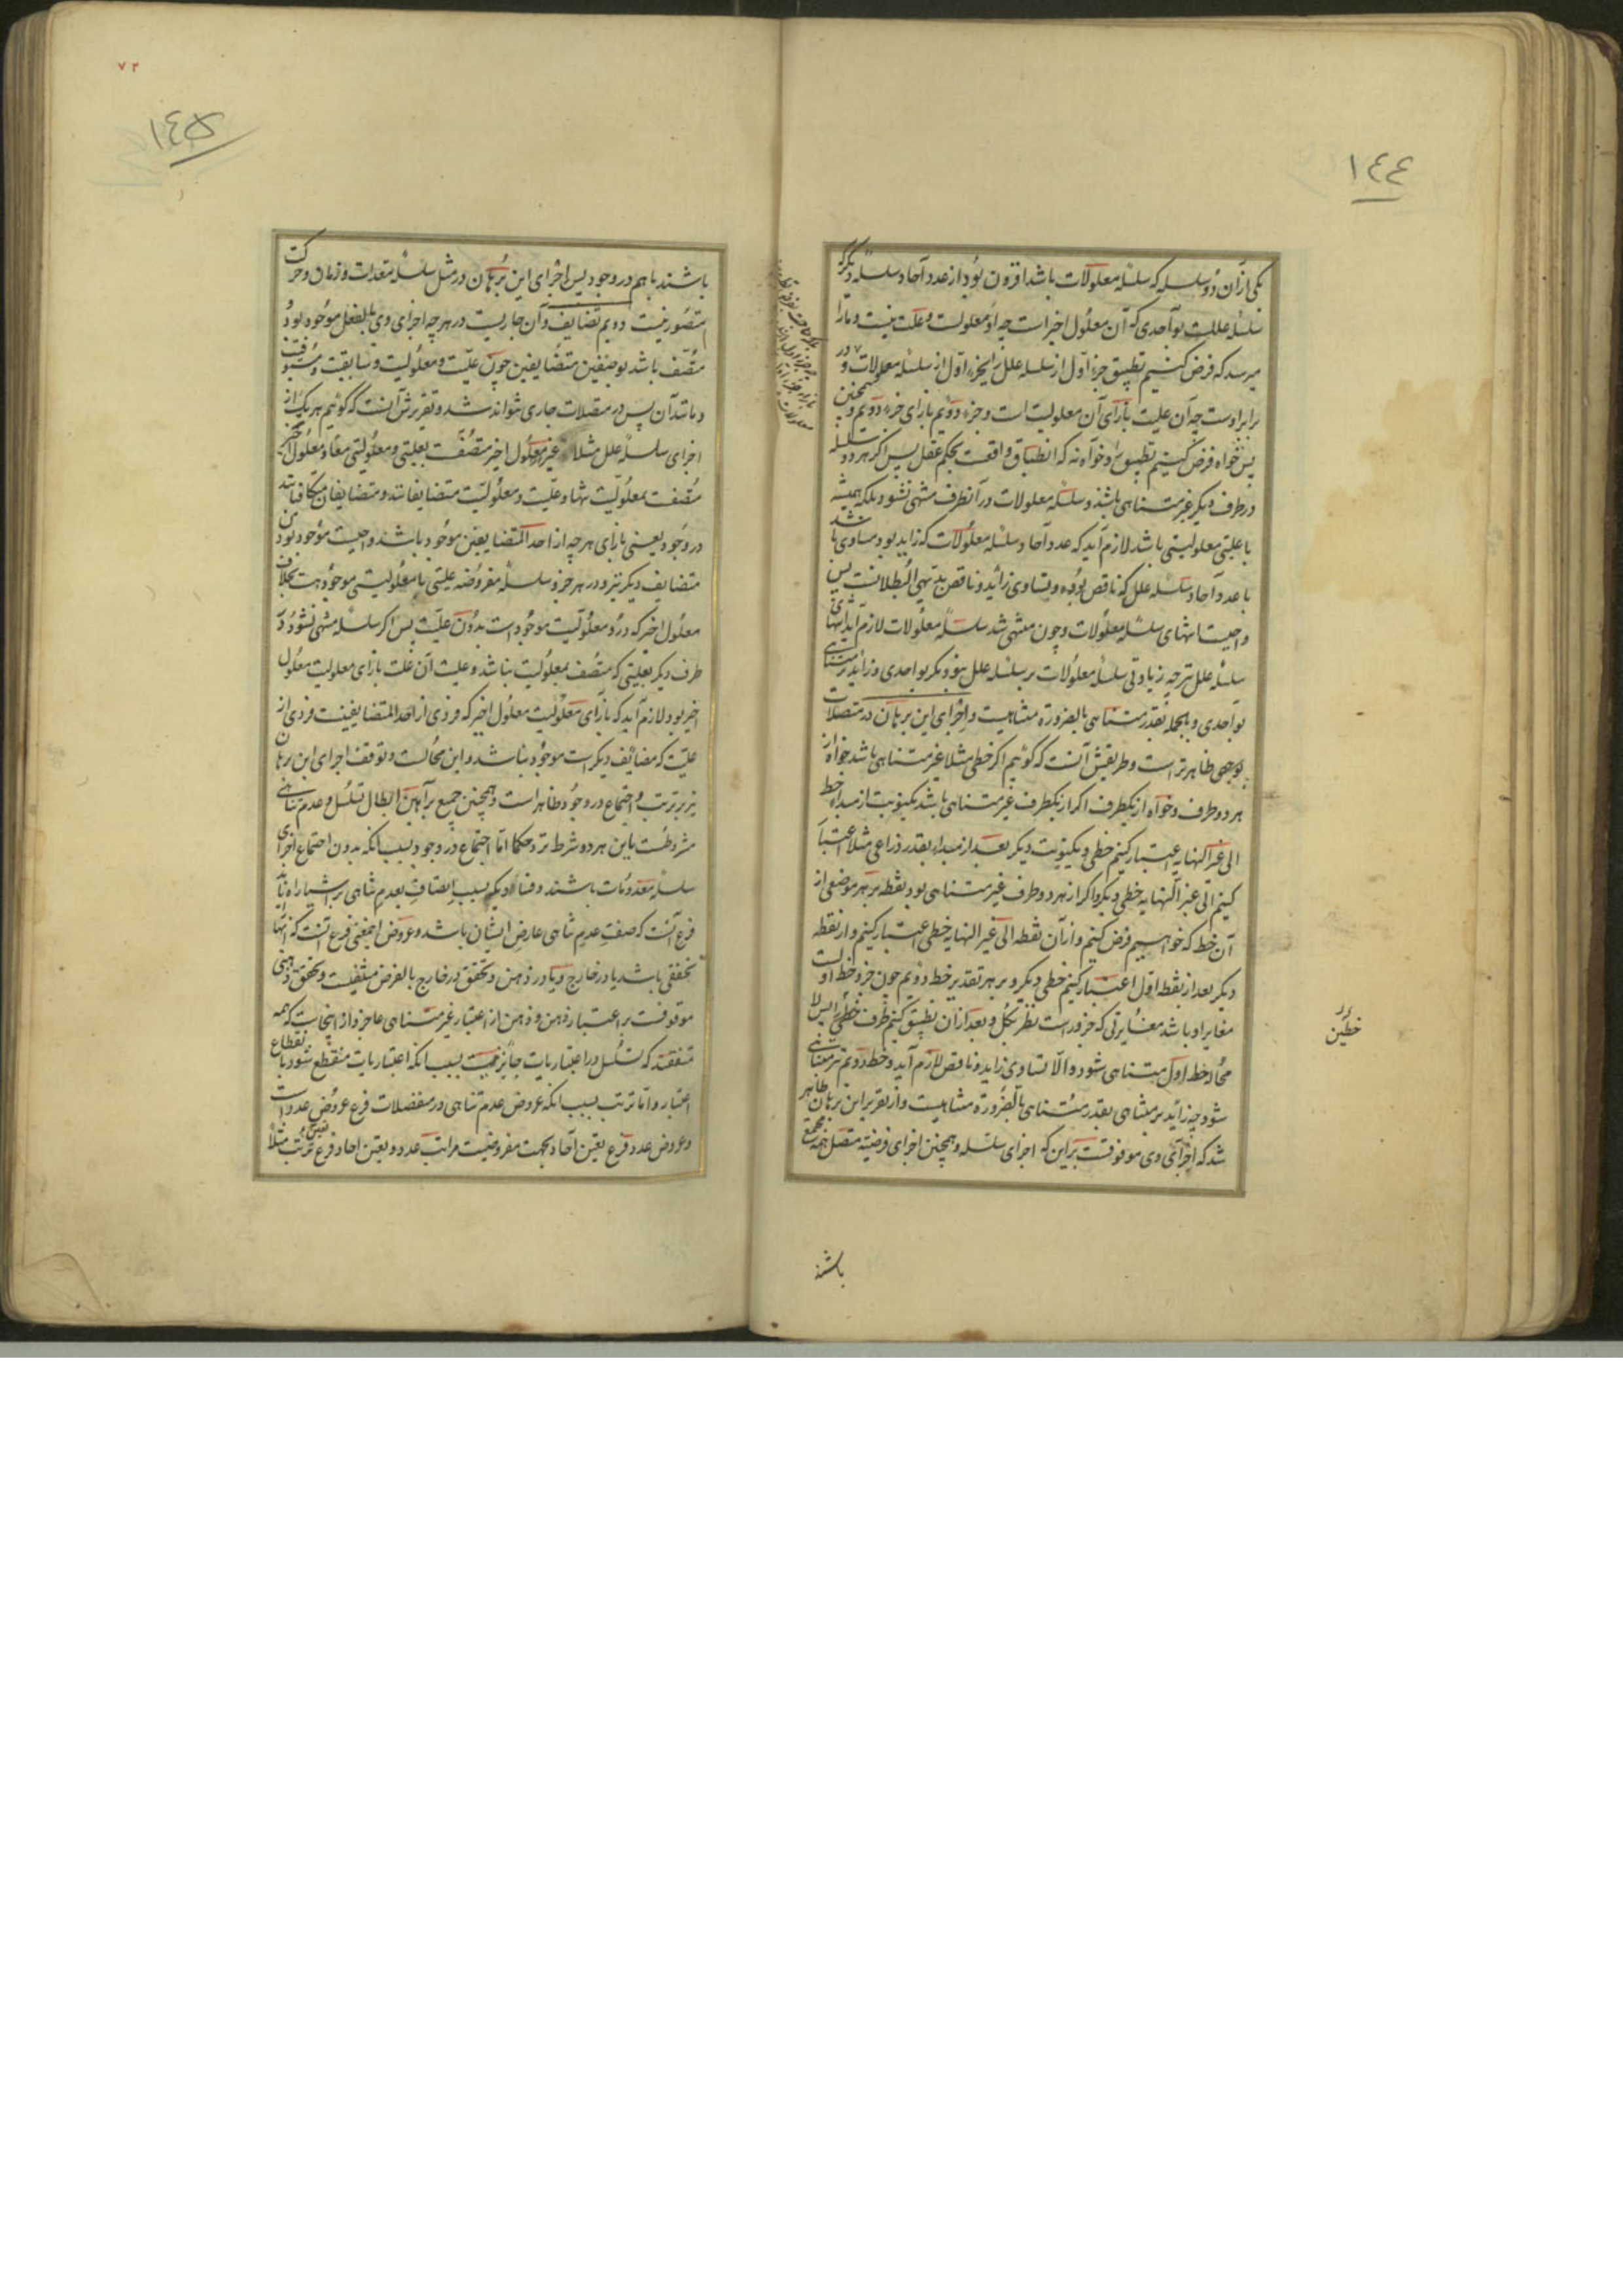 ١٤٤
یکی از آن دو سلسله که سلسلهٔ معلولات باشد افزون بود از عدد آحاد سلسلهٔ دیگر که
سلسلهٔ عللست بواحدی که آن معلول اخیر است چه او معلولست و علت نیست و ما را
میرسد که فرض کنیم تطبیق جزء اول از سلسله علل را بجزء اول از سلسله معلولات و در
برابر اوست چه آن علیت بازای آن معلولیت است و جزء دویم بازای جزء دویم و همچنین
پس خواه فرض کنیم تطبیق و خواه نه که انطباق واقعست بحکم عقل پس اگر هر دو سلسله
در طرف دیگر غیر متناهی باشند و سلسله معلولات در آنطرف منتهی نشود بلکه همیشه
با علیتی معلولیتی باشد لازم آید که عدد آحاد سلسله معلولات که زاید بود مساوی باشد
با عدد آحاد سلسله علل که ناقص بوده و تساوی زائد و ناقص بدیهی البطلانست پس
واجبست انتهای سلسله معلولات و چون منتهی شد سلسله معلولات لازم آید انتهای
سلسله علل نیز چه زیادتی سلسله معلولات بر سلسله علل نبود مگر بواحدی و زائد بر متناهی
بواحدی و بالجمله بقدر متناهی بالضروره متناهیست و اجرای این برهان در متصلات
بوجهی ظاهرتر است و طریقش آنست که گوئیم اگر خطی مثلا غیر متناهی باشد خواه از
هر دو طرف و خواه از یکطرف اگر از یکطرف غیر متناهی باشد یکنوبت از مبدا خط
الی غیر النهایه اعتبار کنیم خطی و یکنوبت دیگر بعد از مبداء بقدر ذراعی مثلا اعتبار
کنیم الی غیر النهایه خطی دیگر و اگر از هر دو طرف غیر متناهی بود نقطه بر هر موضعی از
آن خط که خواهیم فرض کنیم و از آن نقطه الی غیر النهایه خطی اعتبار کنیم و از نقطه
دیگر بعد از نقطه اول اعتبار کنیم خطی دیگر و بر هر تقدیر خط دویم چون جزو خط اولست
مغایر او باشد مغایرتی که جزو راست نظر بکل و بعد از آن تطبیق کنیم طرف خطین را پس لا
محاله خط اول متناهی شود و الا تساوی زاید و ناقص لازم آید و خط دویم نیز متناهی
شود چه زائد بر متناهی بقدر متناهی بالضروره متناهیست و از تقریر این برهان ظاهر
شد که اجرای وی موقوفست بر این که اجزای سلسله و همچنین اجزای فرضیه متصل همه مجتمع
باشند
خطین
٧٣
١٤٥
باشند با هم در وجود پس اجرای این برهان در مثل سلسله معدات و زمان و حرکت
متصور نیست دویم تضایف و آن جاریست در هر چه اجزای وی بالفعل موجود بود
متصف باشد بوصفین متضایفین چون علیت و معلولیت و سابقیت و مسبوقیت
و مانند آن پس در متصلات جاری نتواند شد و تقریرش آنست که گوئیم هر یک از
اجزای سلسله علل مثلا غیر معلول اخیر متصفست بعلیتی و معلولیتی معا و معلول اخیر
متصفست بمعلولیت تنها و علیت و معلولیت متضایفانند و متضایفان متکافیانند
در وجود یعنی بازای هر چه از احد المتضایفین موجود باشند واجبست موجود بودن
متضایف دیگر نیز و در هر جزو سلسلهٔ مفروضه علیتی با معلولیتی موجود هست بخلاف
معلول اخیر که در او معلولیت موجود است بدون علیت پس اگر سلسله منتهی نشود در
طرف دیگر بعلیتی که متصف بمعلولیت نباشد و علیت آن علت بازای معلولیت معلول
اخیر بود لازم آید که بازای معلولیت معلول اخیر که فردی از احد المتضایفینست فردی از
علیت که مضایف دیگر است موجود نباشد و این محالست و توقف اجرای این برهان
نیز بر ترتب و اجتماع در وجود ظاهر است و همچنین جمیع براهین ابطال تسلسل و عدم تناهی
مشروطست باین هر دو شرط نزد حکما اما اجتماع در وجود بسبب آنکه بدون اجتماع اجزای
سلسله معدومات باشند و فنا دیگر بسبب اتصاف بعدم تناهی بر اشیا راه نیابد
فرع آنست که صفت عدم تناهی عارض ایشان باشد و عروض اینمعنی فرع آنست که انها را
تحققی باشد یا در خارج و یا در ذهن و تحقق در خارج بالفرض منتفیست و تحقق ذهنی
موقوفست بر اعتبار ذهن و ذهن از اعتبار غیر متناهی عاجز و از اینجاست که همه
متفقند که تسلسل در اعتباریات جایز نیست بسبب انکه اعتباریات منقطع شود بانقطاع
اعتبار و اما ترتب بسبب انکه عروض عدم تناهی در منفصلات فرع عروض عدد است
و عروض عدد فرع تعین آحاد بجهت مفروضیت مراتب عدد و تعین احاد فرع ترتب مثلا